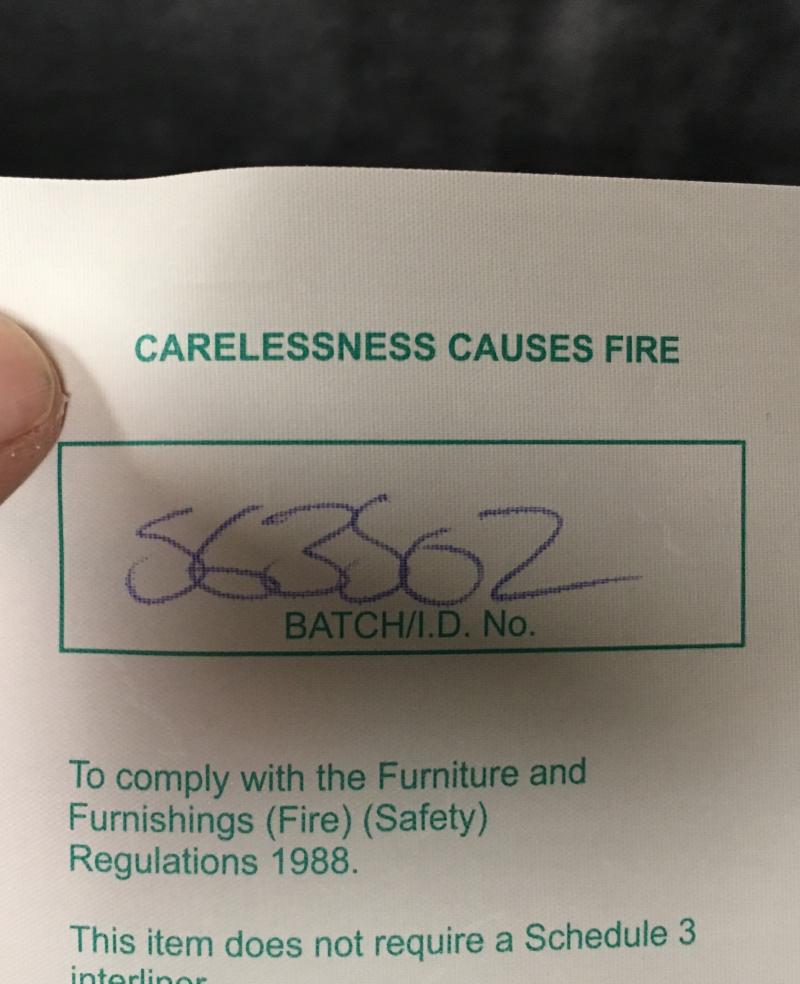 CARELESSNESS CAUSES FIRE
563562
BATCH/I.D. No.
To comply with the Furniture and
Furnishings (Fire) (Safety)
Regulations 1988.
This item does not require a Schedule 3
interliner